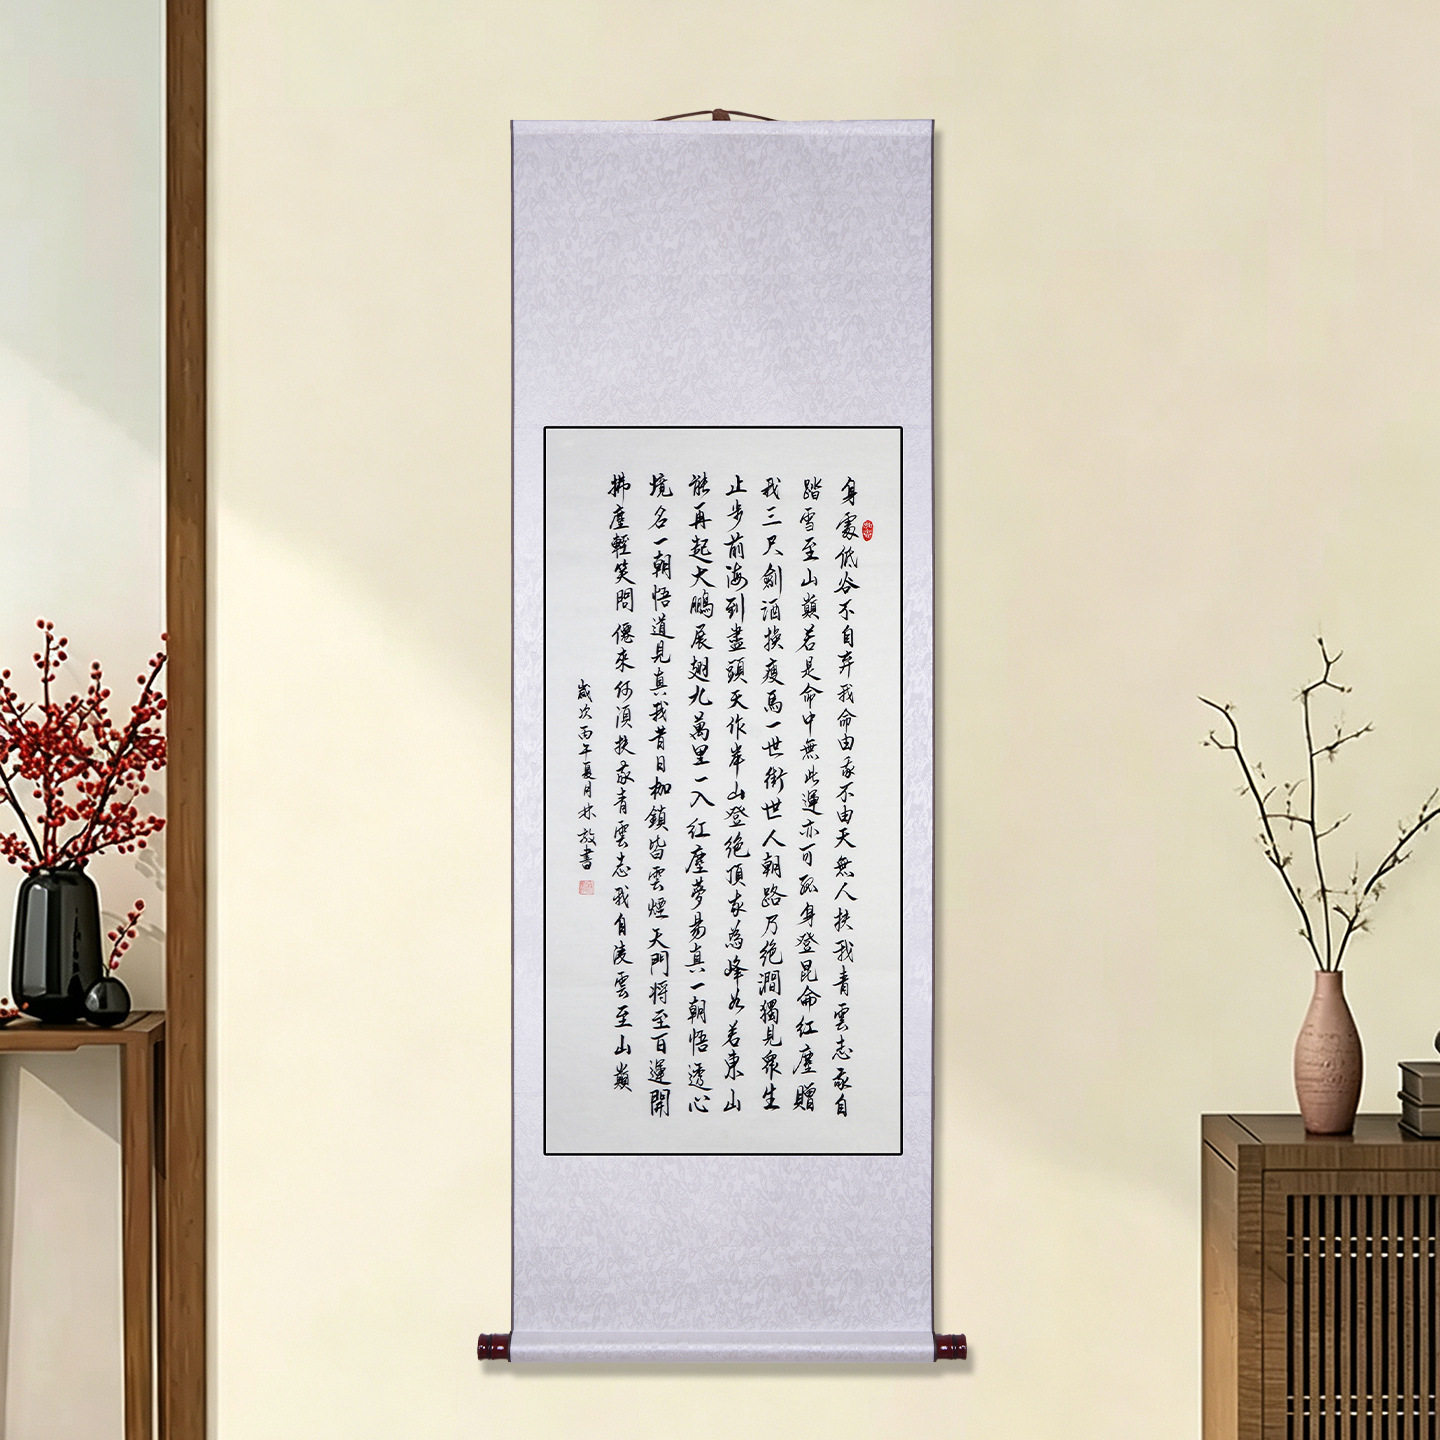 身處低谷不自弃我命由我不由天無人扶我青雲志我自
踏雪至山巔若是命中無此運亦可孤身登昆侖红塵贈
我三尺劍酒换瘦馬一世街世人朝路乃绝澗獨見衆生
止步前海到盡頭天作岸山登绝頂我為峰如若東山
能再起大鵬展翅九萬里一入红塵夢易真一朝悟透心
境名一朝悟道見真我昔日枷鎖皆雲煙天門将至百運開
拂塵輕笑問僊來何須扶我青雲志我自淩雲至山巔
歲次丙午夏月林放書